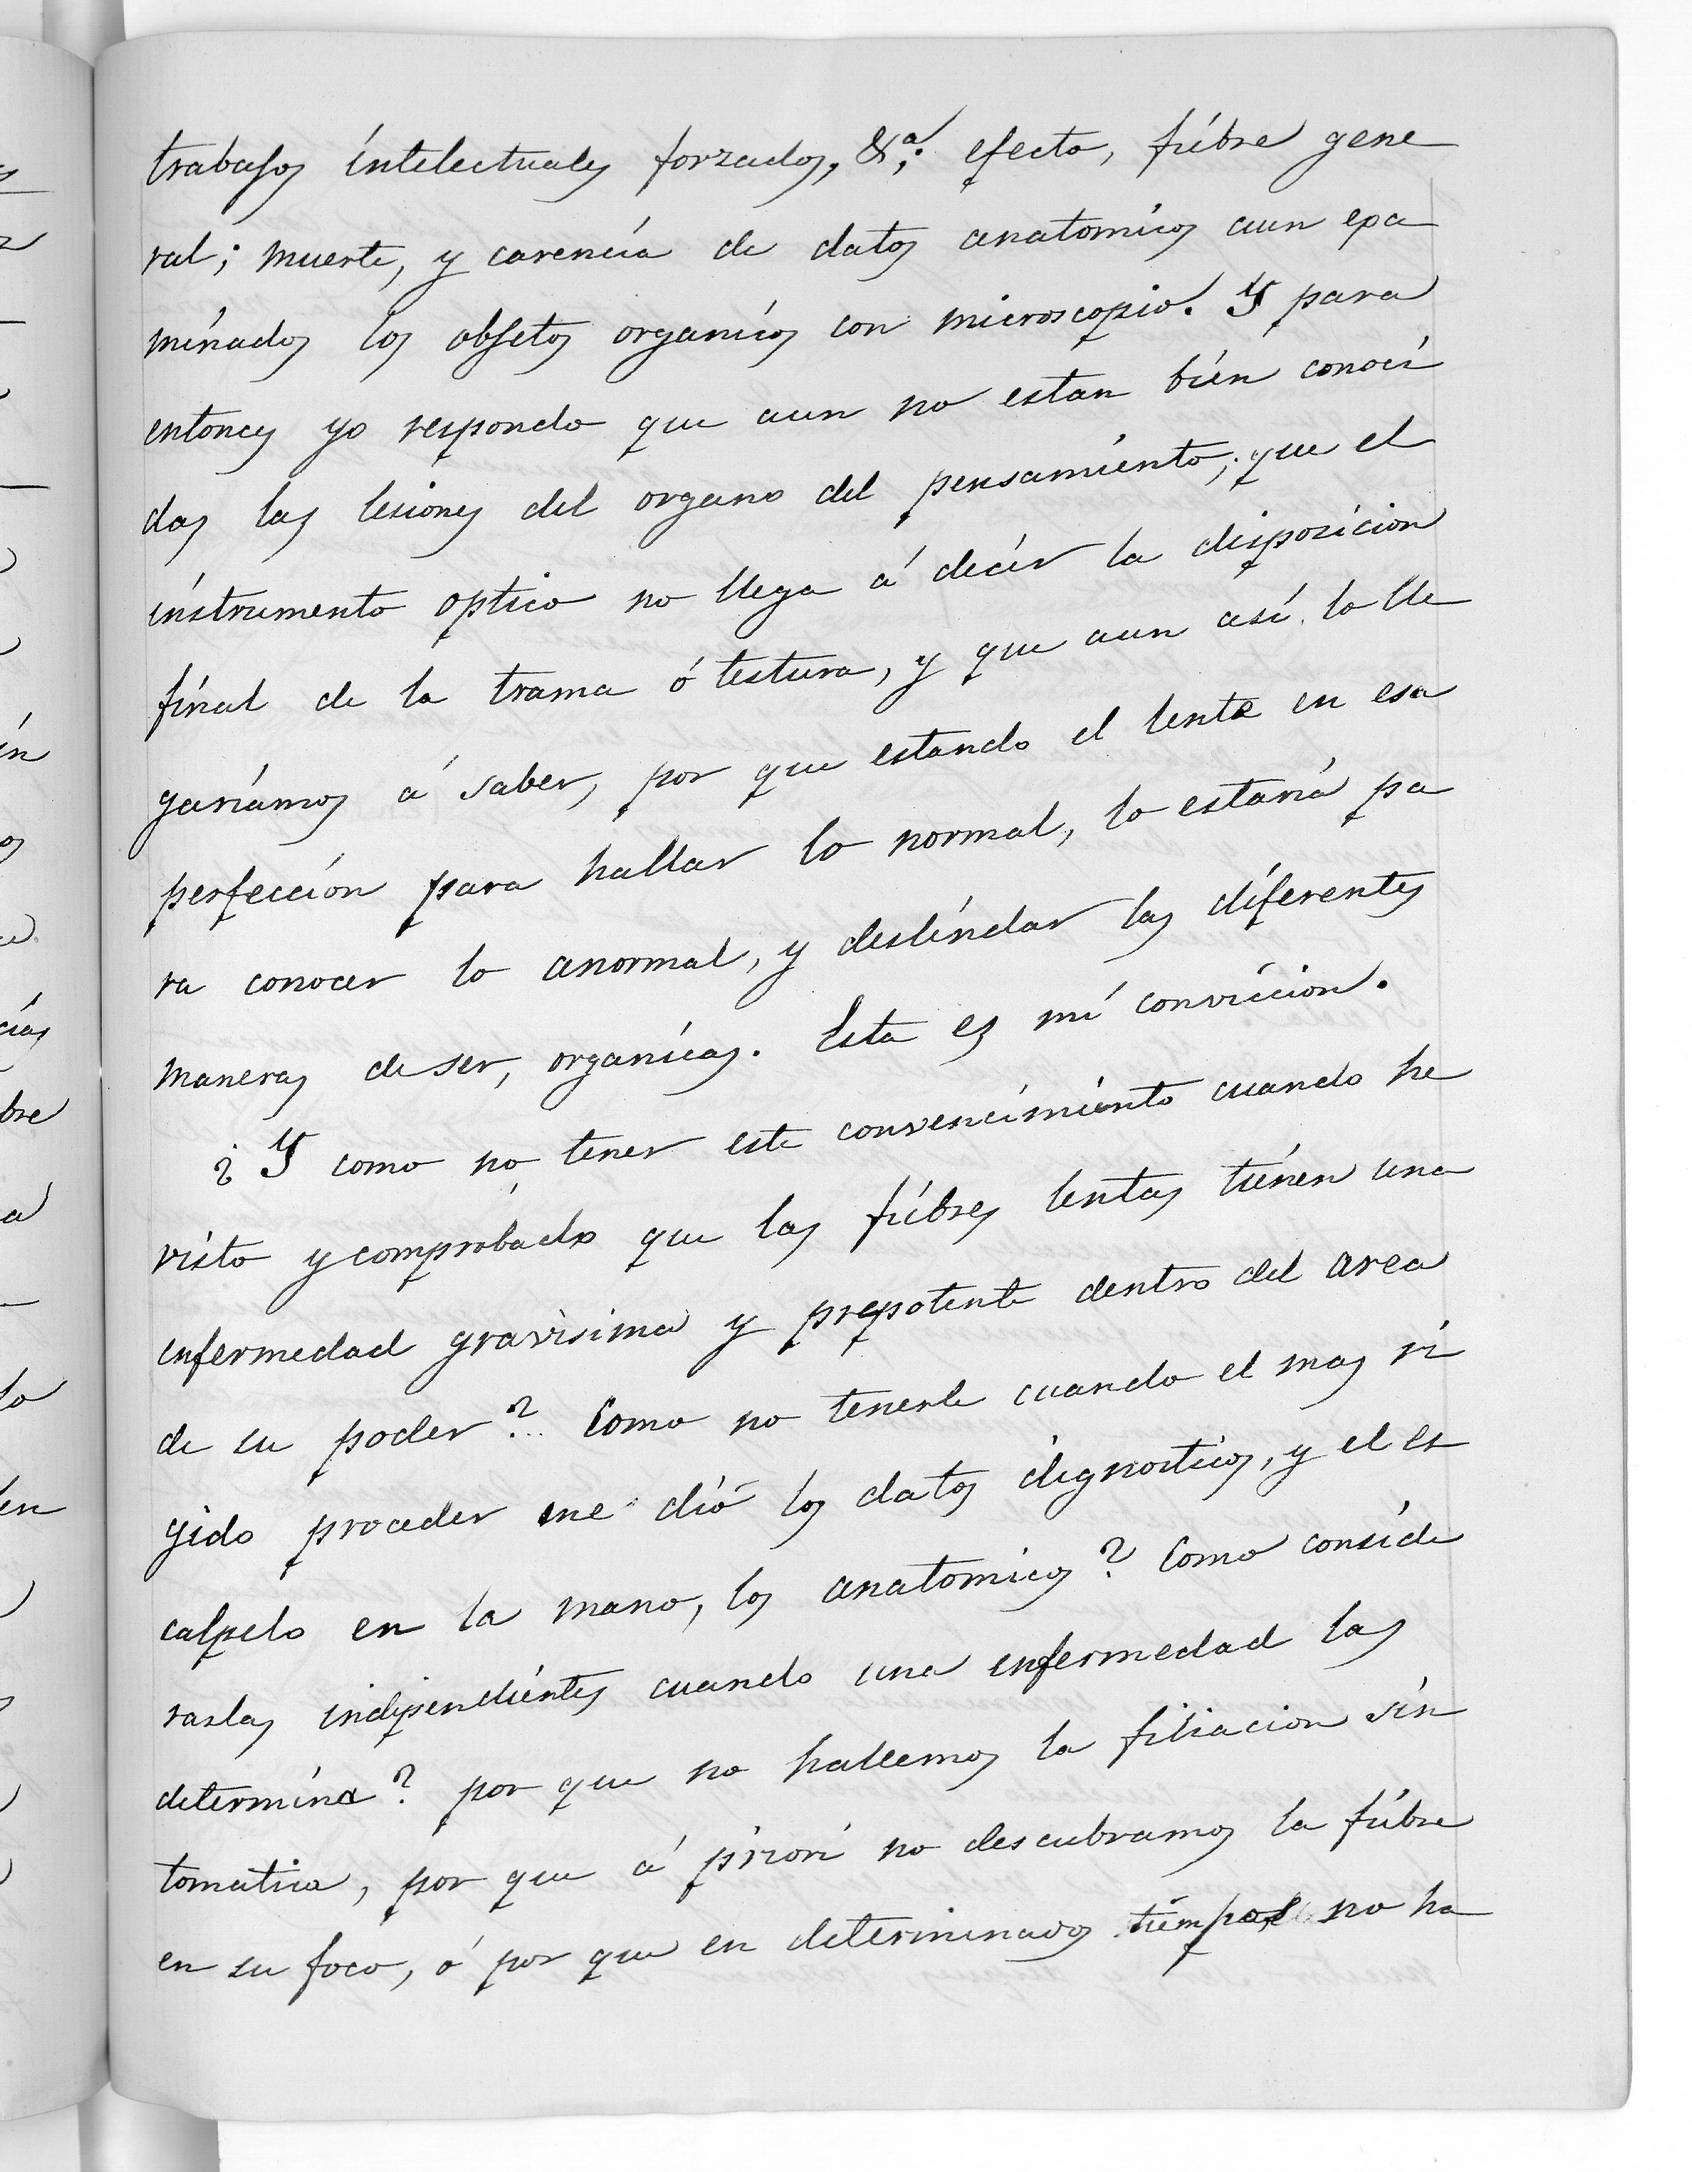 trabajos intelectuales forzados, &ª; efecto, fiebre gene
ral; muerte, y carencia de datos anatomicos aun exa
minados los objetos organicos con microscopio. Y para
entonces yo respondo que aun no estan bien conoci
das las lesiones del organo del pensamiento; que el
instrumento optico no llega á decir la disposicion
final de la trama ó testura, y que aun así lo lle
gariamos á saber, por que estando el lente en esa
perfeccion para hallar lo normal, lo estaria pa
ra conocer lo anormal, y deslindar las diferentes
maneras de ser, organicas. Esta es mi conviccion.
¿Y como no tener este convencimiento cuando he
visto y comprobado que las fiebres lentas tienen una
enfermedad gravisima y prepotente dentro del area
de su poder?.. Como no tenerle cuando el mas ri
gido proceder me dió los datos dignosticos, y el es
calpelo en la mano, los anatomicos? Como conside
rarlas independientes cuando una enfermedad las
determina? por que no hallemos la filiacion sin
tomatica, por que á priori no descubramos la fiebre
en su foco, ó por que en determinados tiempos no ha